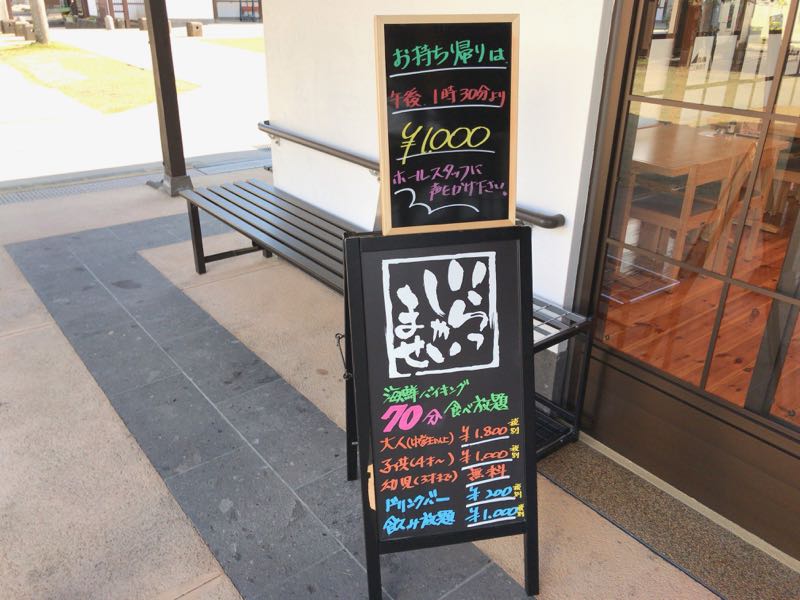 お持ち帰りは
午後 1時30分より
¥1000
ホールスタッフに
声をかけ下さい!
いらっ
しゃい
ませ
海鮮バイキング
70分食べ放題
大人(中学生以上) ¥1,800 税別
子供(4才〜) ¥1,000 税別
幼児(3才まで) 無料
ドリンクバー ¥200 税別
飲み放題 ¥1,000 税別